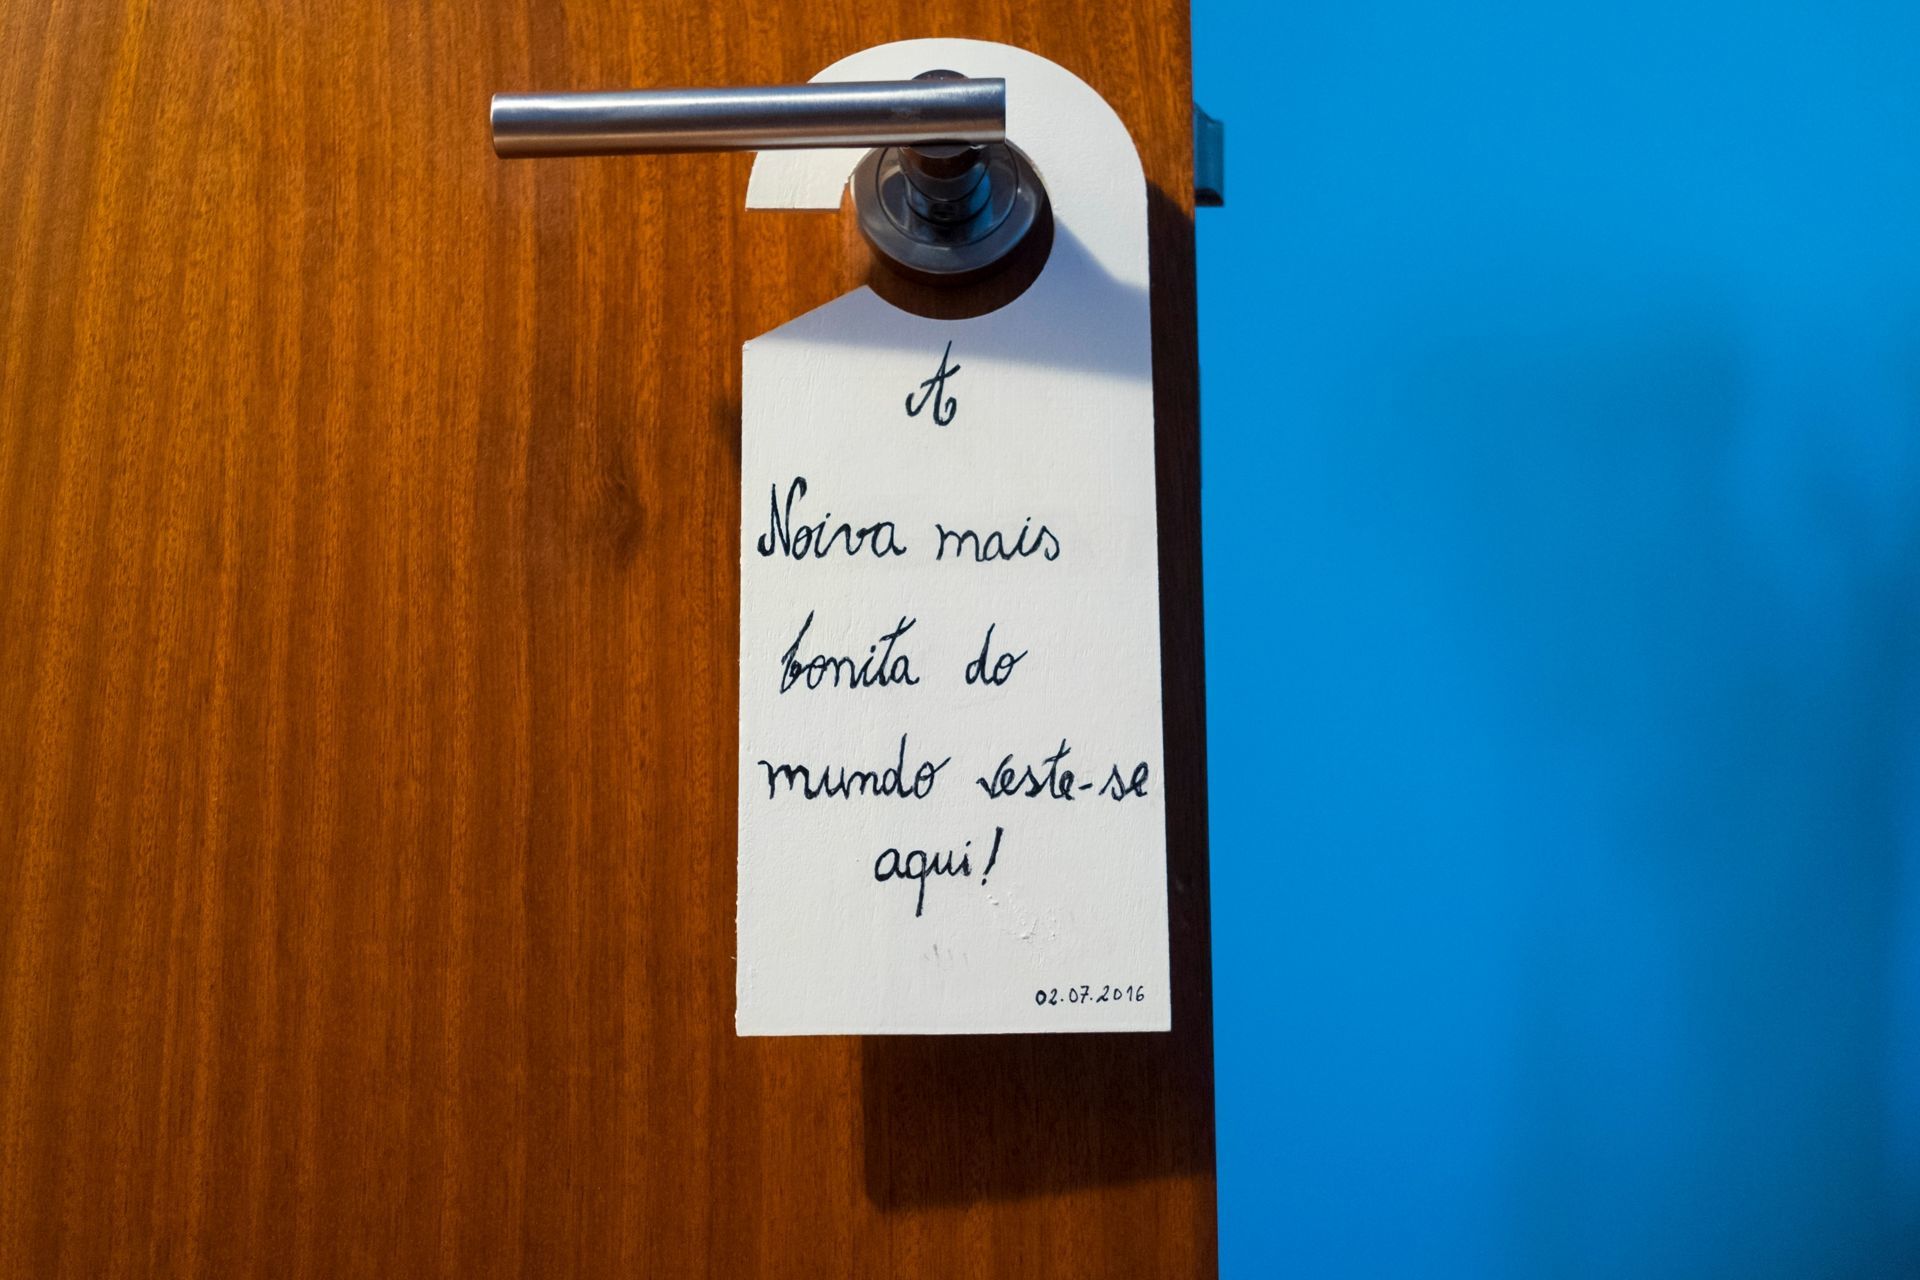 A
Noiva mais
bonita do
mundo veste-se
aqui!
02.07.2016